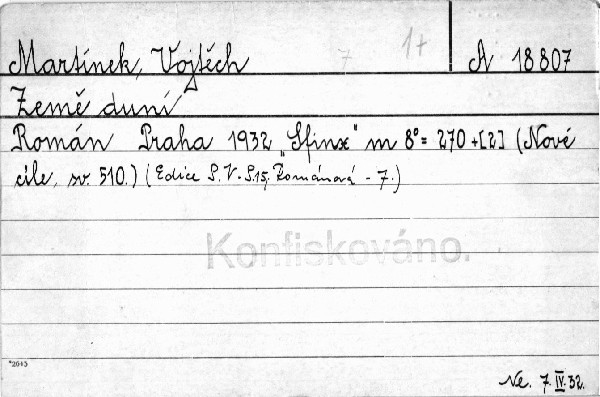 7 1+
Martínek, Vojtěch A 18807
Země duní
Román Praha 1932 "Sfinx" m 8°= 270 +[2] (Nové
cíle, sv. 510.) (Edice S.V.-S.15, Románová - 7.)
Konfiskováno.
*2643
Ne. 7.IV.32.